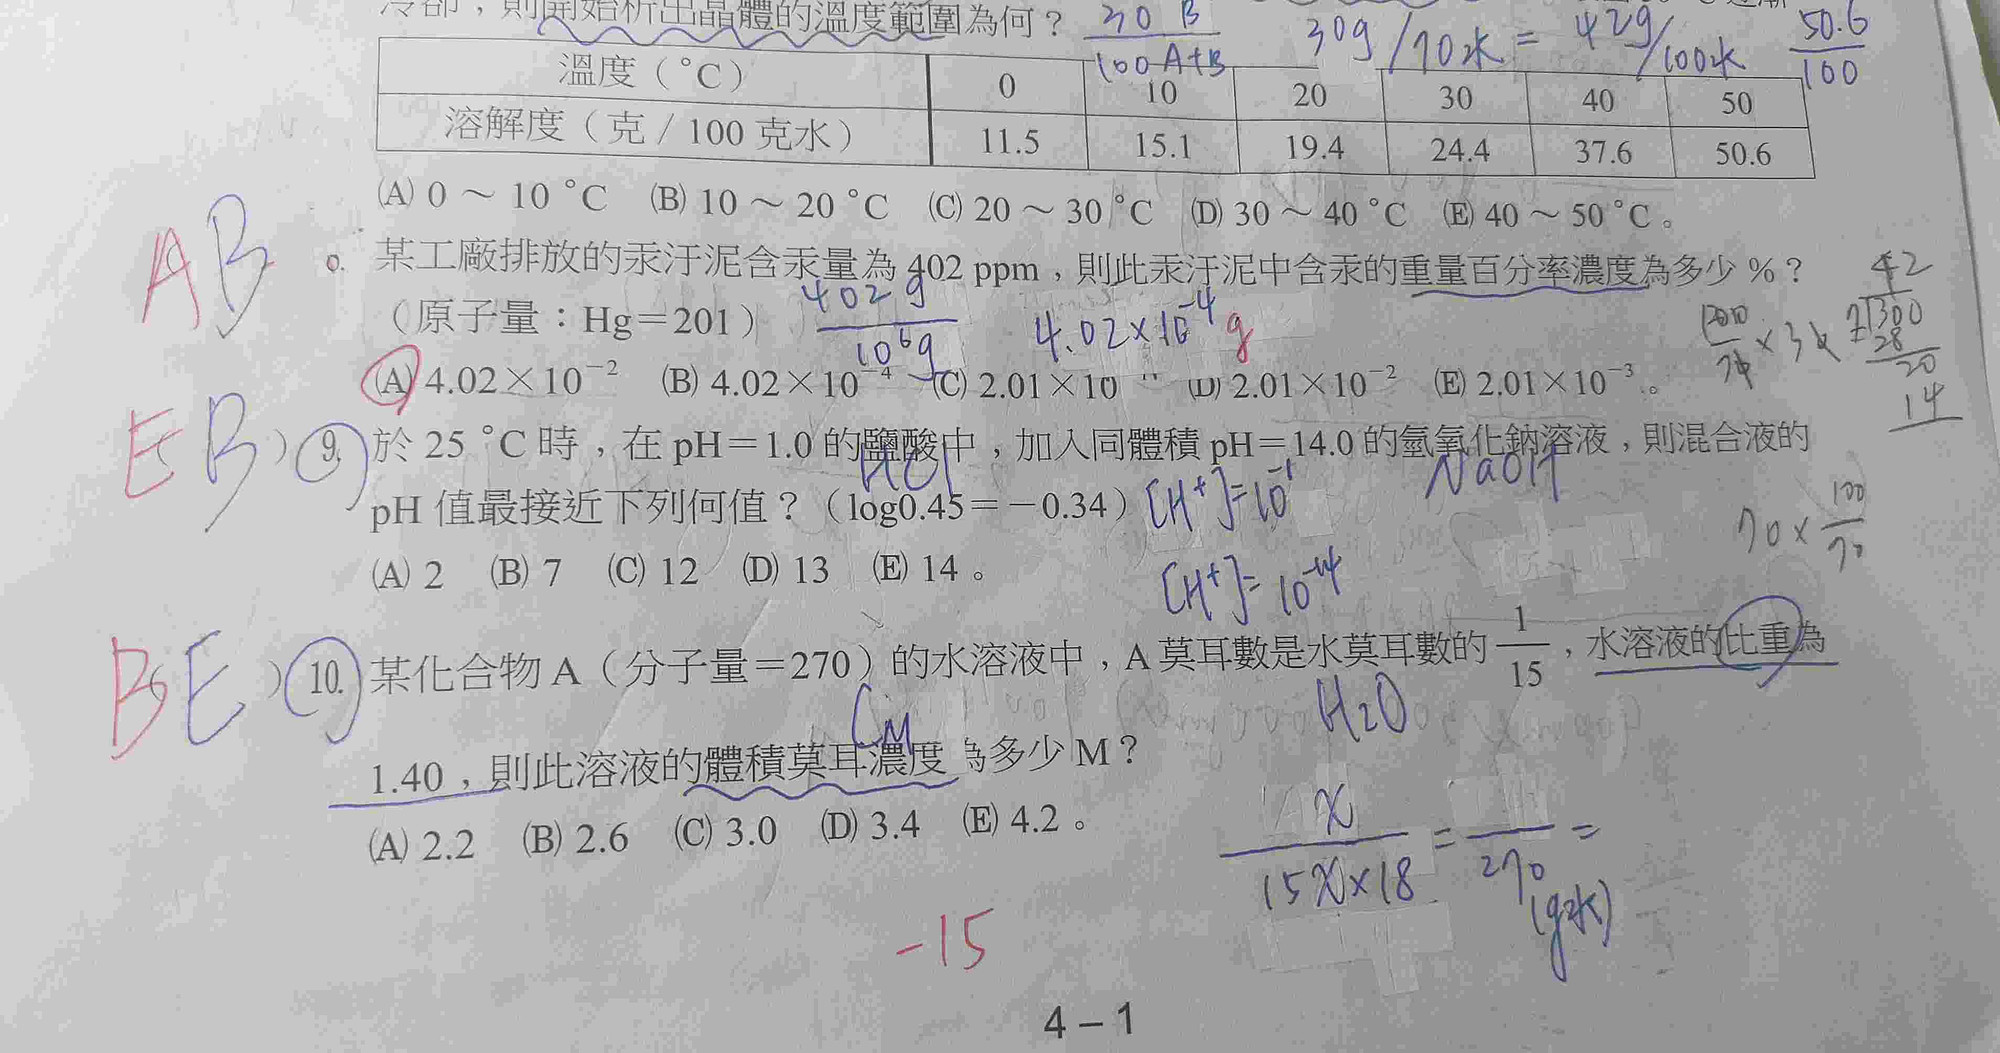 冷卻，則開始析出晶體的溫度範圍為何？ 30 B / 100 A+B 30g/70水 = 42g/100水 50.6/100
溫度（°C） 0 10 20 30 40 50
溶解度（克／100 克水） 11.5 15.1 19.4 24.4 37.6 50.6
(A) 0～10 °C (B) 10～20 °C (C) 20～30 °C (D) 30～40 °C (E) 40～50 °C。
AB
某工廠排放的汞汙泥含汞量為 402 ppm，則此汞汙泥中含汞的重量百分率濃度為多少 %？
（原子量：Hg＝201） 402g / 10⁶g 4.02×10⁻⁴ g
42
7 300
28
20
14
(A) 4.02×10⁻² (B) 4.02×10⁻⁴ (C) 2.01×10 (D) 2.01×10⁻² (E) 2.01×10⁻³。
EB ) 9. 於 25 °C 時，在 pH＝1.0 的鹽酸中，加入同體積 pH＝14.0 的氫氧化鈉溶液，則混合液的
HCl NaOH
pH 值最接近下列何值？（log0.45＝－0.34） [H⁺]=10⁻¹
70×100/70
(A) 2 (B) 7 (C) 12 (D) 13 (E) 14。
[H⁺]=10⁻¹⁴
BE ) 10. 某化合物 A（分子量＝270）的水溶液中，A 莫耳數是水莫耳數的 1/15，水溶液的比重為
CM H₂O
1.40，則此溶液的體積莫耳濃度為多少 M？
(A) 2.2 (B) 2.6 (C) 3.0 (D) 3.4 (E) 4.2。
x / 15x×18 = / 270 (g水) =
-15
4－1